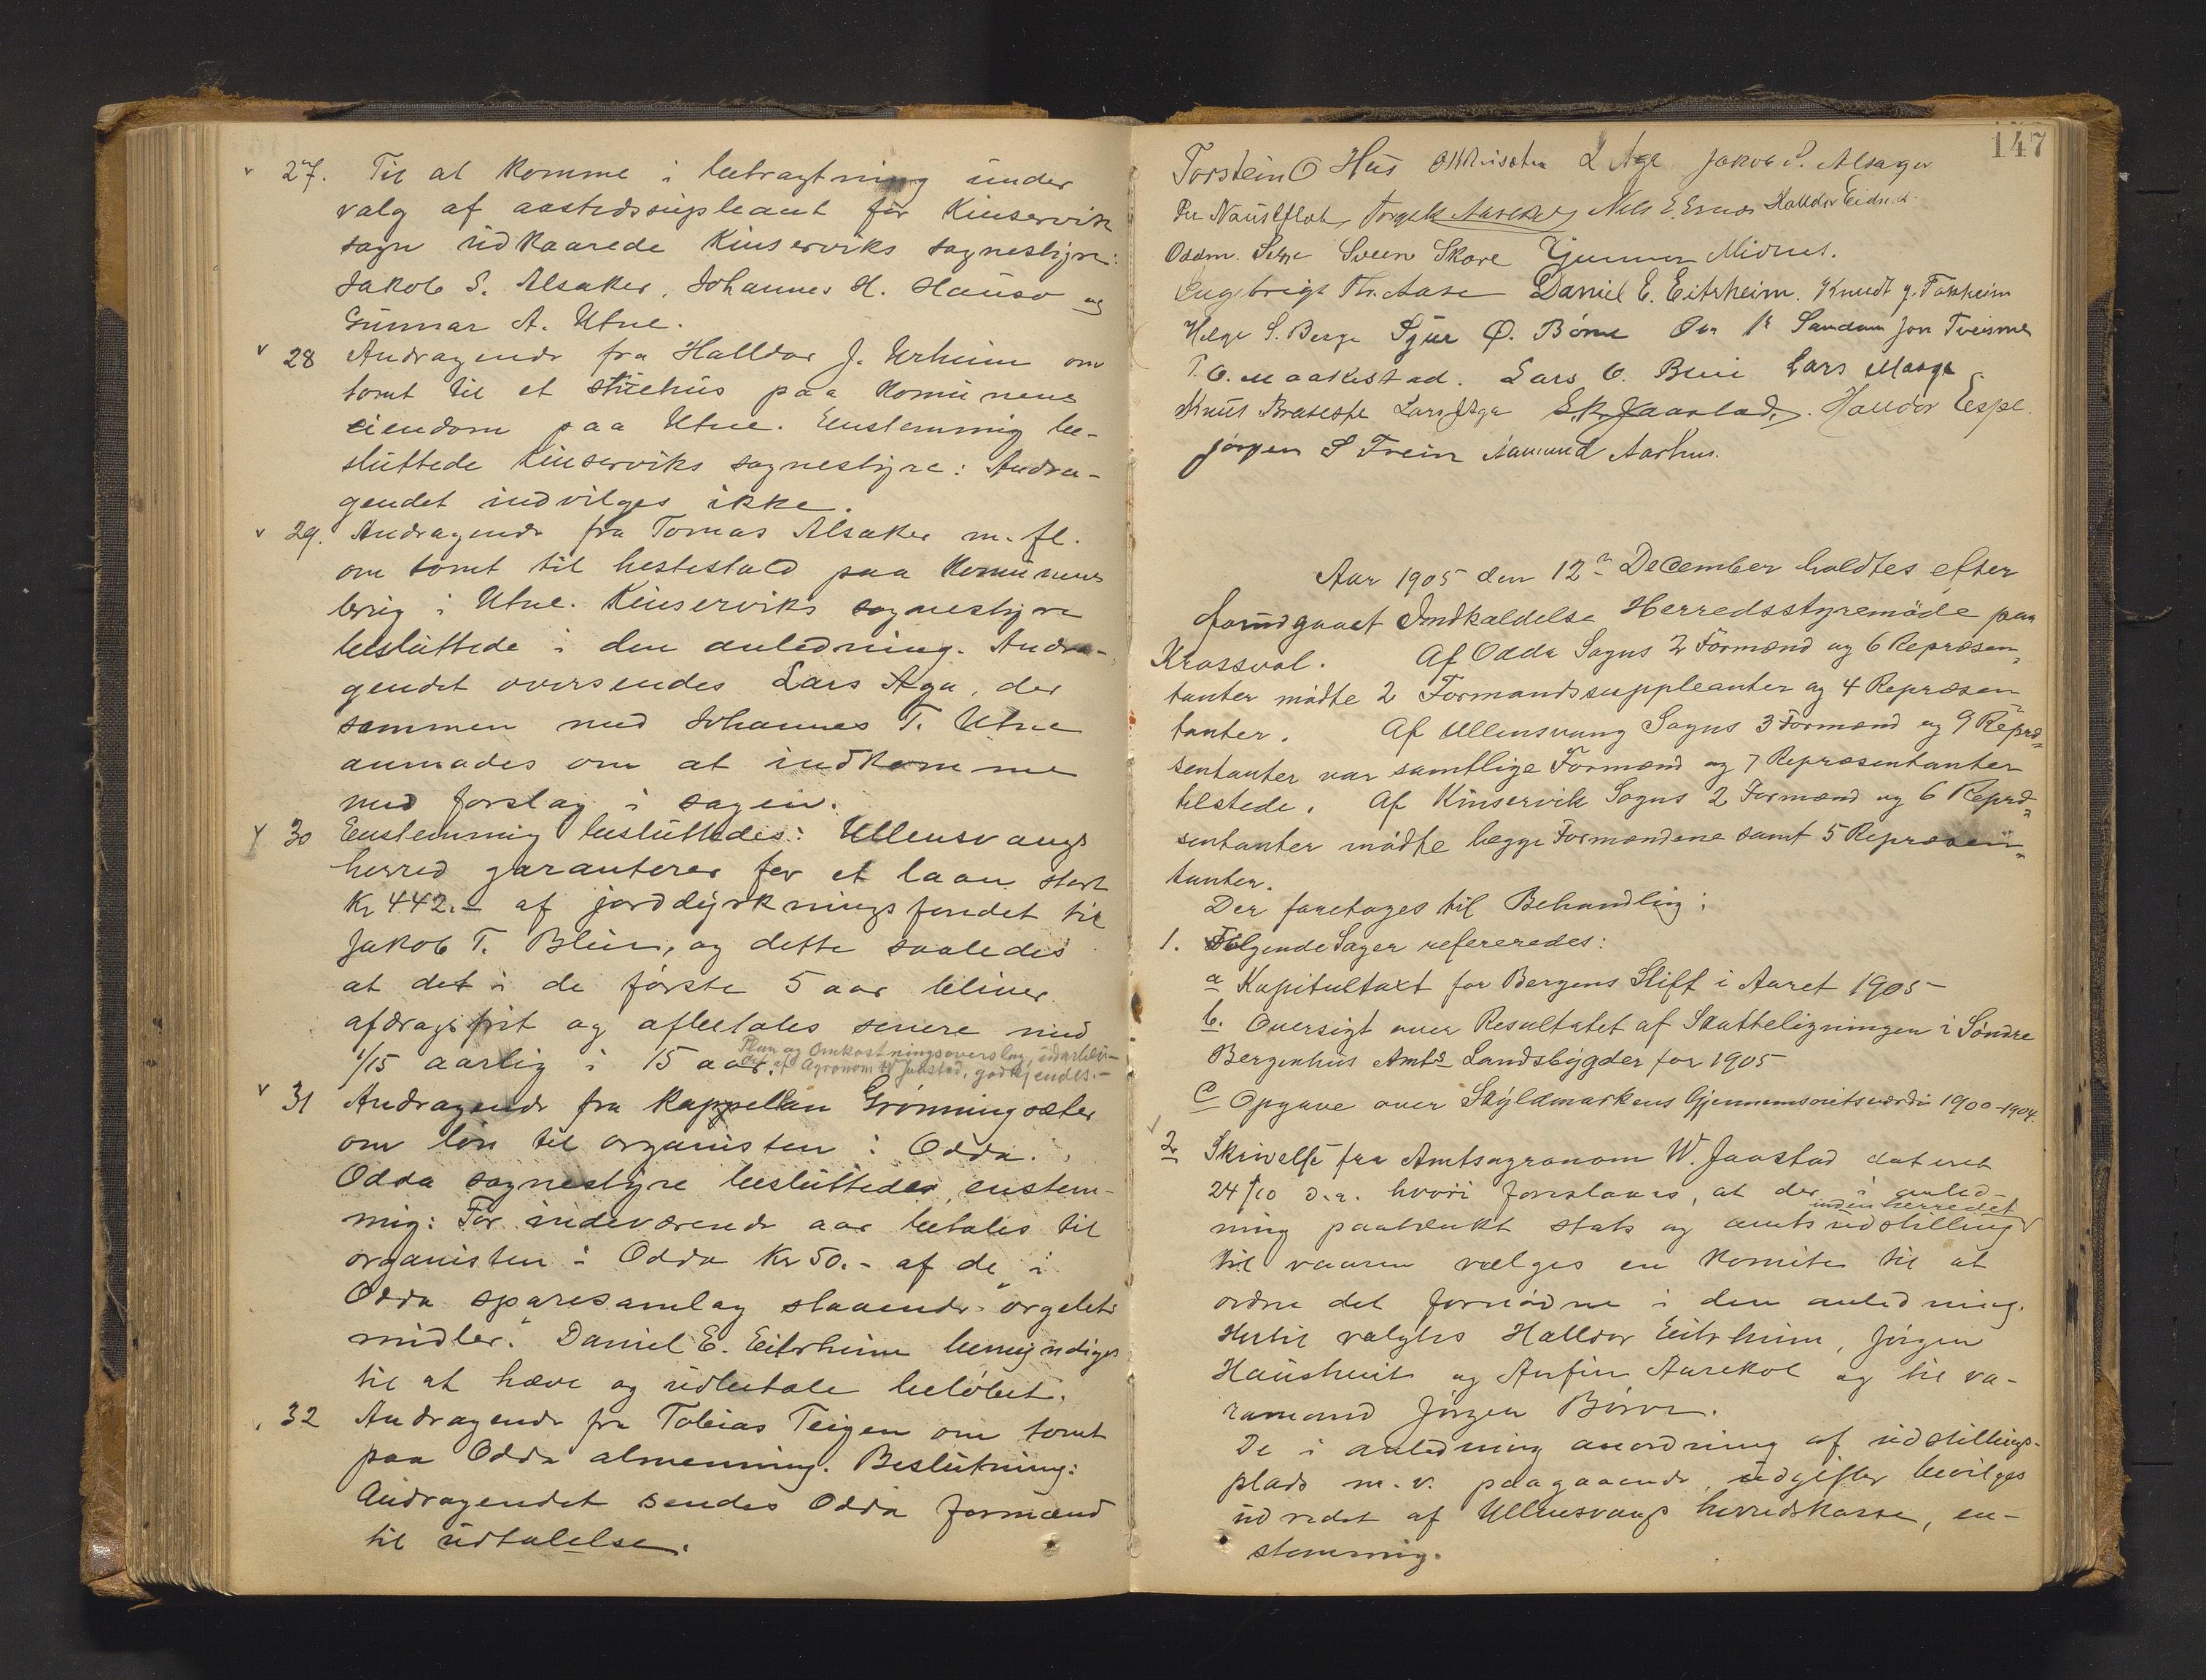 27. Til at komme i betragtning under
valg af aastedssupleant for Kinservik
sogn udkaarede Kinserviks sognestyre:
Jakob S. Alsaker, Johannes H. Hauso og
Gunnar A. Utne.
28 Andragende fra Halldor J. Urheim om
tomt til et stuehus paa Komunens
eiendom paa Utne. Enstemmig be-
sluttede Kinserviks sognestyre: Andra-
gendet indvilges ikke.
29. Andragende fra Tomas Alsaker m. fl.
om tomt til hestestald paa Komunens
brug i Utne. Kinserviks sognestyre
besluttede i den anledning. Andra-
gendet oversendes Lars Aga, der
sammen med Johannes T. Utne
anmodes om at indkomme
med forslag i sagen.
30 Enstemmig besluttedes: Ullensvangs
herred garanterer for et laan stort
Kr 442.- af jorddyrkningsfondet til
Jakob T. Bleie, og dette saaledes
at det i de første 5 aar bliver
afdragsfrit og afbetales senere med
1/15 aarlig i 15 aar. Plan og Omkostningsoverslag, udarbei-
det af Agronom W Jaastad, godkjendes.-
31 Andragende fra Kappellan Grønningsæter
om løn til organisten i Odda.
Odda sognestyre besluttedes enstem-
mig: For indeværende aar betales til
organisten i Odda Kr 50.- af de i
Odda sparesamlag staaende "orgelets
midler." Daniel E. Eitrheim bemyndiges
til at hæve og udbetale beløbet.
32 Andragende fra Tobias Teigen om tomt
paa Odda almenning. Beslutning:
Andragendet sendes Odda formænd
til udtalelse.
147
Torstein O Hus L Aga Jakob S. Alsager
Per Naustflot Torgils Nils E. Ernes Halldor Eidn.
Oddm. Sveen Skare Gunnar Midnes.
Engebrigt Th. Aase Daniel E. Eitrheim. Knudt J. Tokheim
Helge S. Berge Sjur Ø. Børve Jon Tveisme
T. O. Maakestad. Lars O. Bleie Lars Maage
Knut Bratespe Lars J Aga S. K. Jaastad. Halldor Espe.
Jørgen S Frein Aamund Aarhus.
Aar 1905 den 12te December holdtes efter
forudgaaet Indkaldelse Herredsstyremøde paa
Krossvol. Af Odda Sogns 2 Formænd og 6 Repræsen-
tanter mødte 2 Formandssuppleanter og 4 Repræsen-
tanter. Af Ullensvang Sogns 3 Formænd og 9 Repræ-
sentanter var samtlige Formænd og 7 Repræsentanter
tilstede. Af Kinservik Sogns 2 Formænd og 6 Repræ-
sentanter mødte begge Formændene samt 5 Repræsen-
tanter.
Der foretoges til Behandling:
1. Følgende Sager refereredes:
a Kapitultaxt for Bergens Stift i Aaret 1905
b. Oversigt over Resultatet af Skatteligningen i Søndre
Bergenhus Amts Landsbygder for 1905
c Opgave over Skyldmarkens Gjennemsnitsværdi 1900-1904.
2 Skrivelse fra Amtsagronom W. Jaastad dateret
24/10 d.a. hvori foreslaaes, at der i anled-
ning paatænkt stats og amtsudstilling inden herredet
til vaaren vælges en Komite til at
ordne det fornødne i den anledning.
Hertil valgtes Halldor Eitrheim, Jørgen
Haustveit og Anfin Aarekol og til va-
ramand Jørgen Børve.
De i anledning anordning af udstillings-
plads m.v. paagaaende udgifter bevilges
udredet af Ullensvangs herredskasse, en-
stemmig.